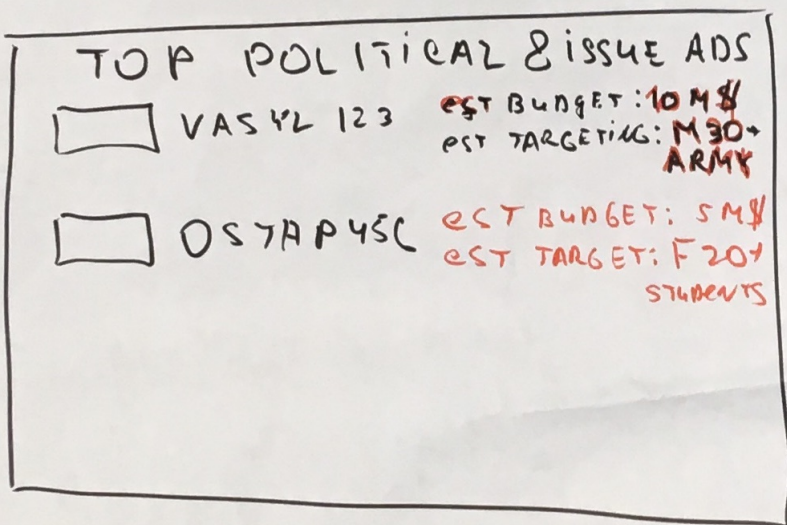 TOP POLITICAL & ISSUE ADS
VASYL 123
EST BUDGET: 10 M$
EST TARGETING: M 30+
ARMY
OSTAP 456
EST BUDGET: 5 M$
EST TARGET: F 20+
STUDENTS